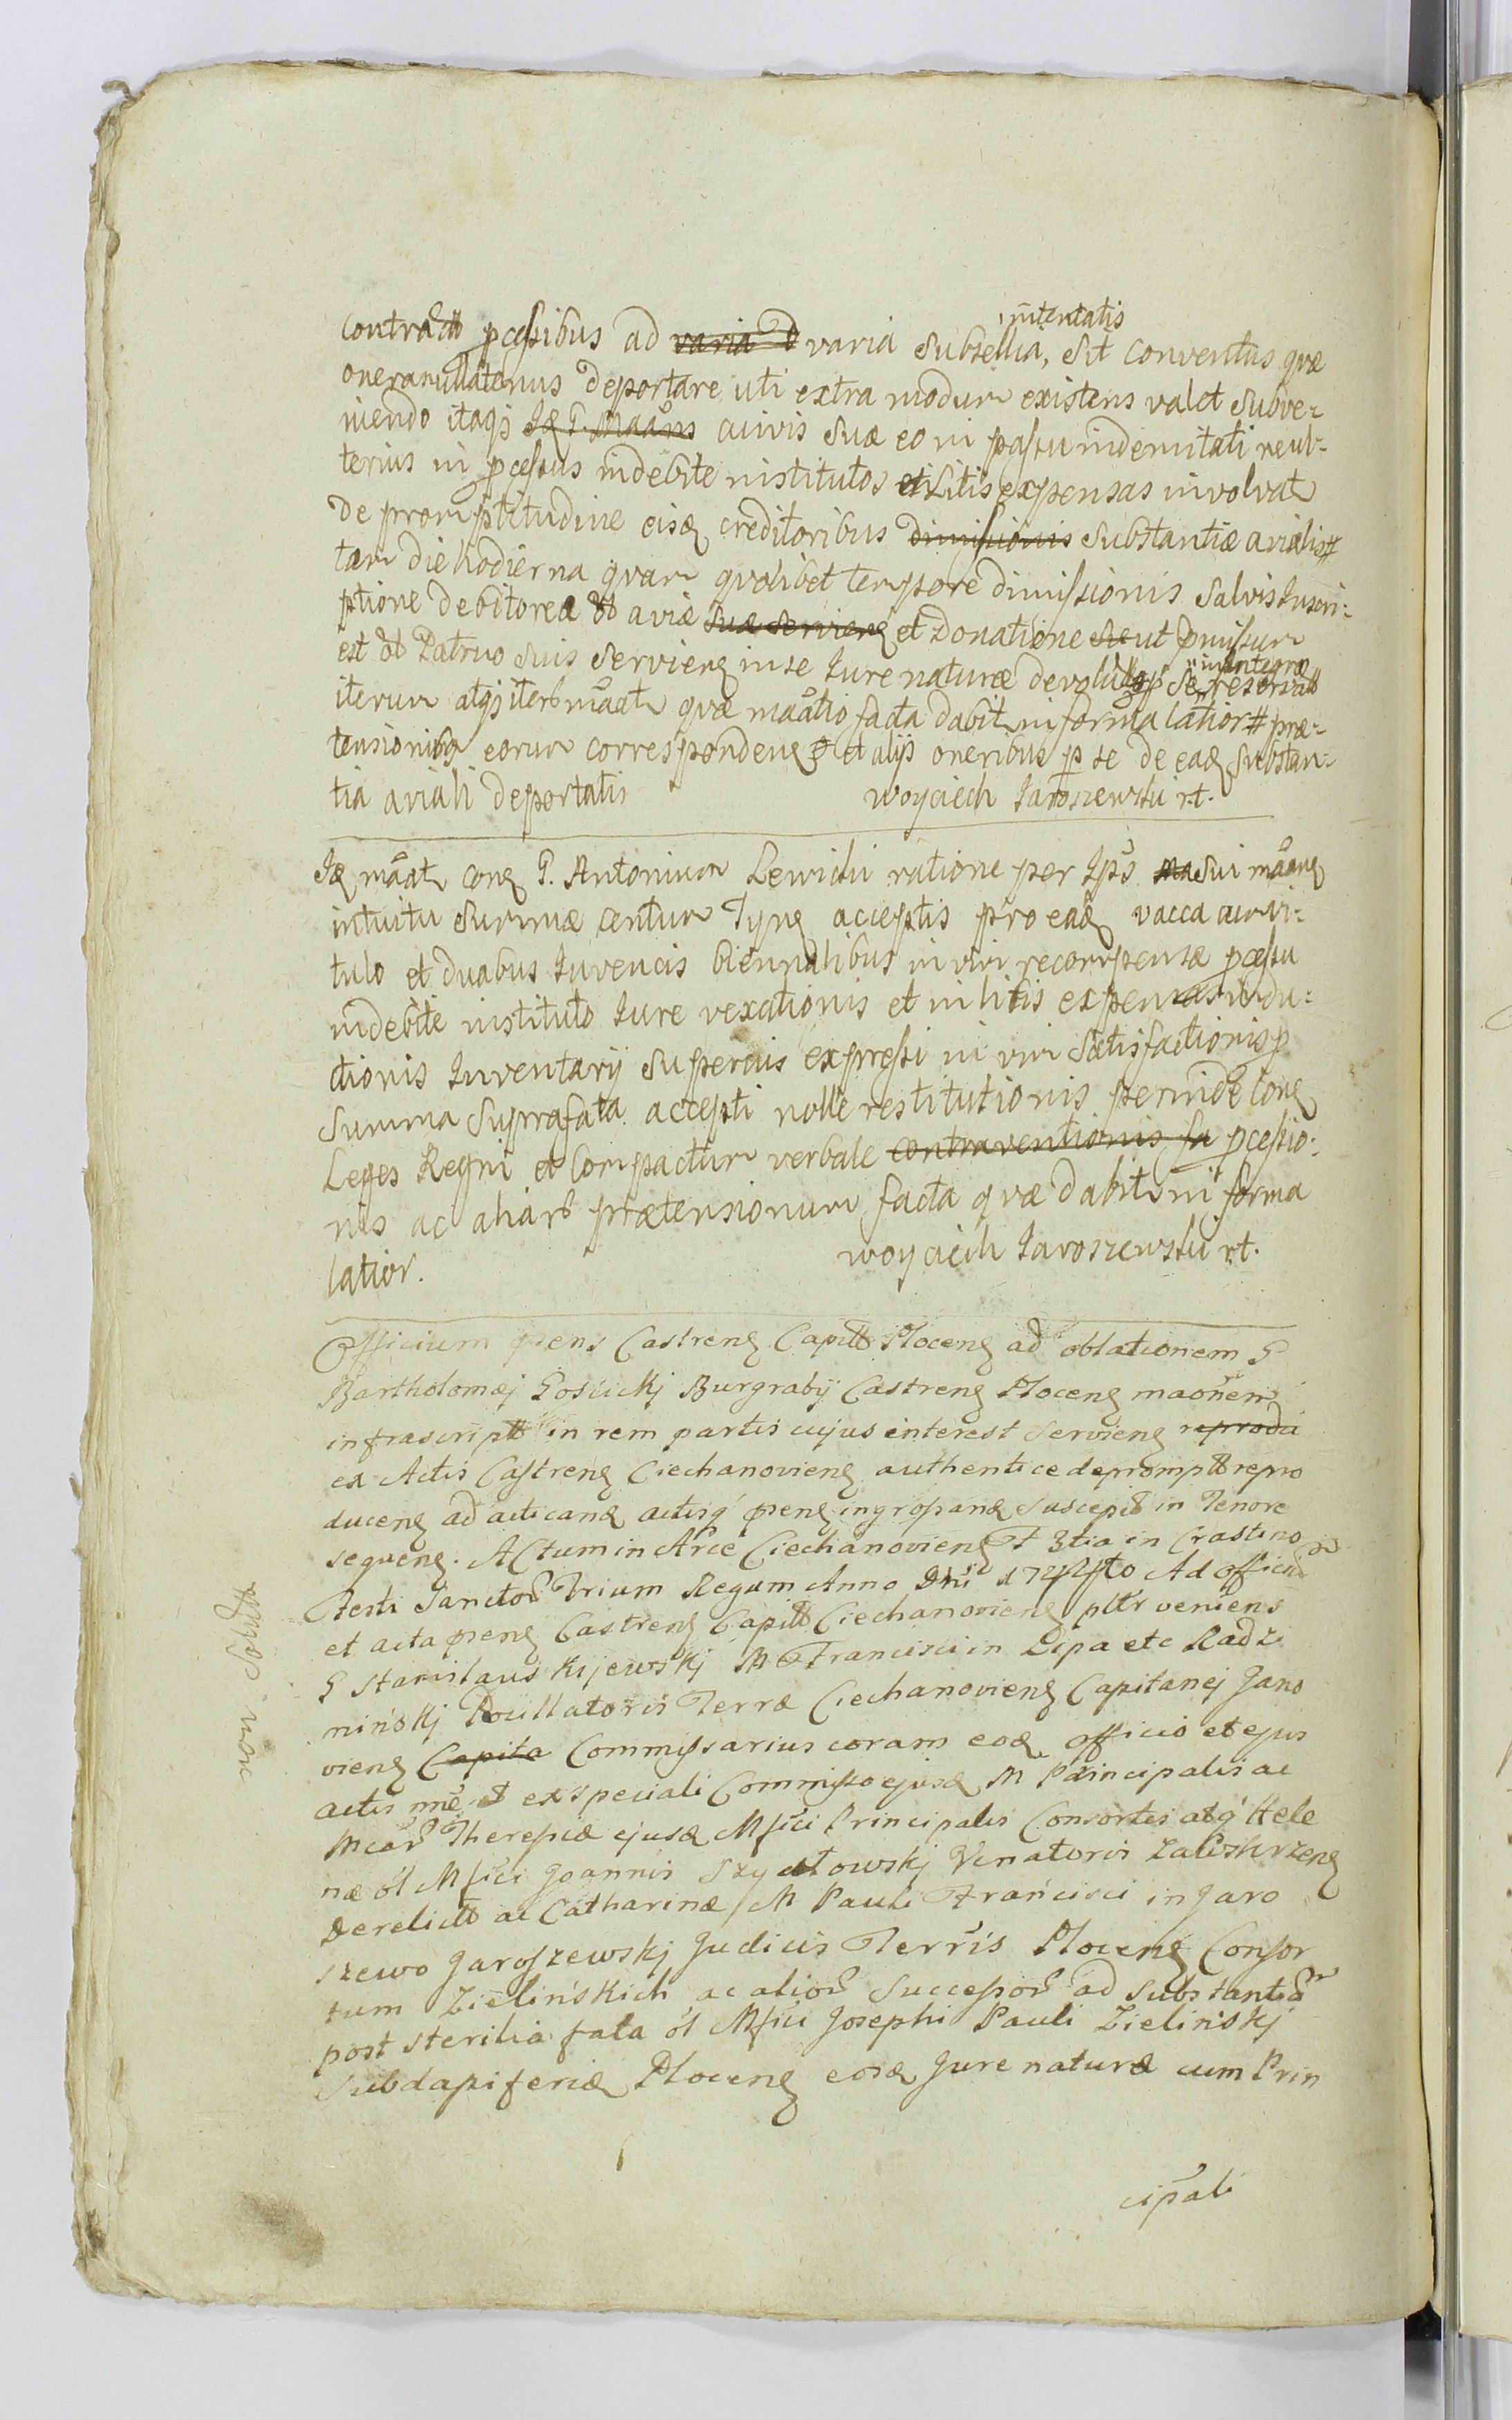 intentatis
contractt pcessibus ad varia d varia Subsellia, Sit conventus quæ
onera nullatenus deportare uti extra modum existens valet Subve-
niendo itaqz Iꝗ G. Maans avivis Suæ eo in passu indemnitati neul-
terius in pcessus indebite institutos et Litis expensas involvat
De promptitudine eisq creditoribus dimissionis Substantiæ avialis #
tam die hodierna quam quolibet tempore dimissionis Salvis Inscri-
ptione debitorea ól aviæ Suæ Servienꝗ et Donatione Se ut pmissum
est ól Patruo Suis Servienꝗ in se Jure naturæ devolutt Se reservatt
in integro
iterum atqz iter maat quæ maatio facta dabit in forma latior # præ-
tensionibꝗ eorum correspondenꝗ et alijs oneribus p se de eadꝗ Substan-
tia aviali deportatis
Woyciech Jaroszewski r.t.
Iꝗ maat conꝗ G. Antonium Lewicki ratione per Ips ma Sui maanꝗ
intuitu Summæ centum Tynꝗ acceptis pro eadꝗ vacca cum vi-
tulo et duabus Juvencis biennalibus in vim recompensæ pcessu
indebite instituto Jure vexationis et in litis expensas indu-
ctionis Inventarij Superius expressi in vim Satisfactionis p
Summa Suprafata accepti nolle restitutionis perinde Conꝗ
Leges Regni et Compactum verbale contraventionis fa pcessio-
nis ac aliar prætensionum facta quæ dabit in forma
latior.
Woyciech Jaroszewski r.t.
Officium pens Castrenꝗ Capitt Plocenꝗ ad oblationem G
Bartholomæj Gościckj Burgrabij Castrenꝗ Plocenꝗ maonem
infrascriptt in rem partis cujus interest Servienꝗ reprodu
ex Actis Castrenꝗ Ciechanovienꝗ authentice depromptt repro
ducenꝗ ad acticandꝗ actisq penꝗ ingrossandꝗ Suscepit in Tenore
sequenꝗ. Actum in Arce Ciechanovienꝗ F 3tia in Crastino
Festi Sanctor Trium Regum Anno Dni 17 Ad Officiu
et acta penꝗ Castrenꝗ Capitt Ciechanovienꝗ pltr veniens
G Stanislaus Kijewskj M Francisci in Lipa etc Radzi
mińskj Pocillatoris Terræ Ciechanovienꝗ Capitanej Jano
vienꝗ Capita Commissarius coram eodꝗ officio et ejus
actis nne et ex speciali Commisso ejusdꝗ M Principalis ac
Mcar Theresiæ ejusdꝗ Mfici Principalis Consortis atq Hele
næ ól Mfici Joannis Szydłowskj Venatoris Zakrskrzenꝗ
Derelictt ac Catharinæ M Pauli Francisci in Jaro
szewo Jaroszewskj Judicis Terris Plocenꝗ Consor
tum Zielińskich ac alior Successor ad Substantia
post sterilia fata ól Mfici Josephi Pauli Zielińskj
Subdapiferidꝗ Plocenꝗ eosdꝗ Jure naturæ cum Prin
cipali